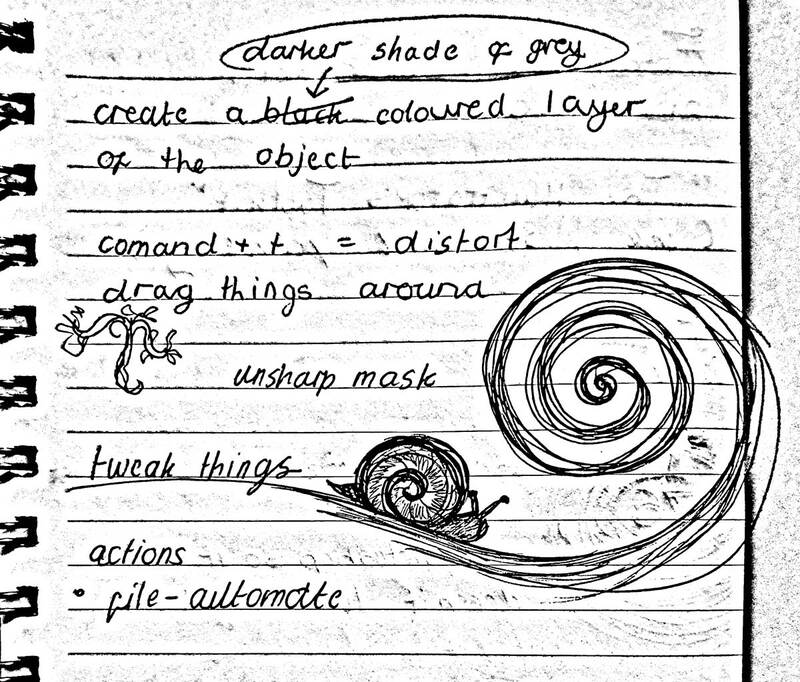 darker shade of grey
create a black coloured layer
of the object
comand + t = distort
drag things around
unsharp mask
tweak things
actions
• file - automate